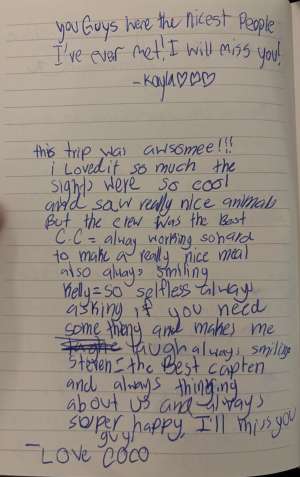 you Guys were the nicest People
I've ever met! I will miss you!
- Kayla♡♡♡
this trip was awsomee!!!
i Loved it so much the
sights were so cool
and saw really nice animals
But the crew was the Best
C.C = alway working so hard
to make a really nice meal
also always smiling
Kelly = so selfless always
asking if you need
some theng and makes me
laugh always smiling
Steven = the Best capten
and always thinking
about us and always
super happy I'll miss you
guys
- LOVE COCO